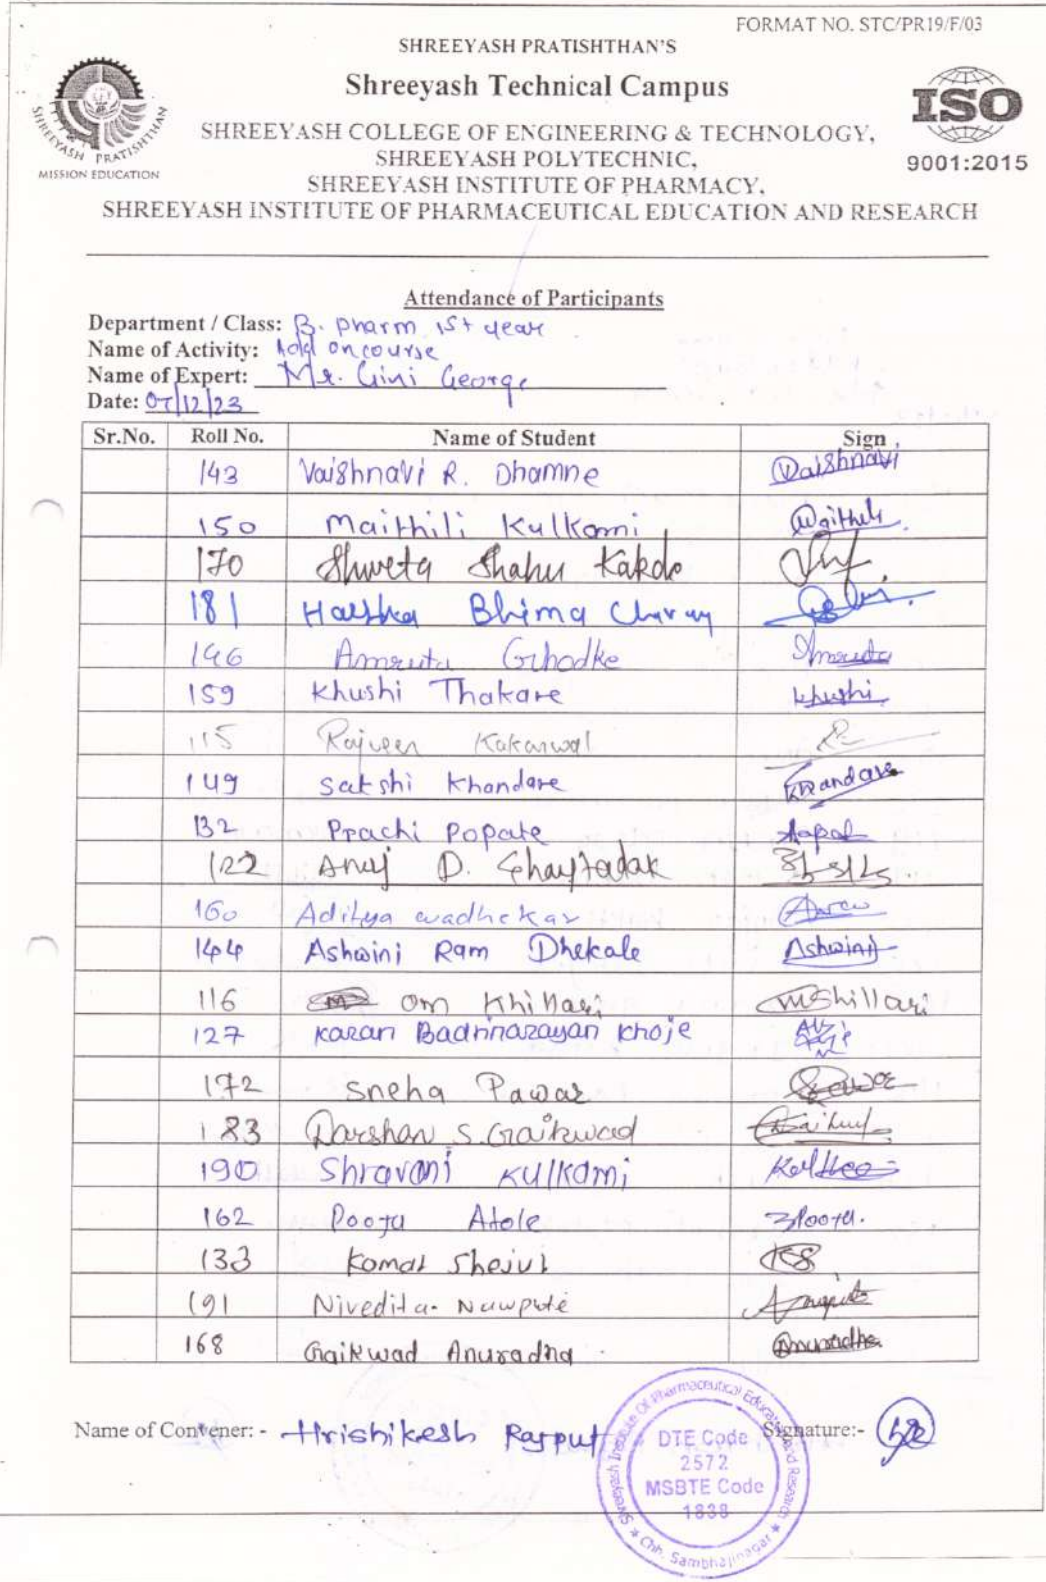 FORMAT NO. STC/PR19/F/03
SHREEYASH PRATISHTHAN'S
Shreeyash Technical Campus
SHREEYASH COLLEGE OF ENGINEERING & TECHNOLOGY,
SHREEYASH POLYTECHNIC,
SHREEYASH INSTITUTE OF PHARMACY,
SHREEYASH INSTITUTE OF PHARMACEUTICAL EDUCATION AND RESEARCH
SHREEYASH PRATISHTHAN
MISSION EDUCATION
ISO
9001:2015
Attendance of Participants
Department / Class: B. pharm 1st year
Name of Activity: Add on course
Name of Expert: Mr. Gini George
Date: 07/12/23
Sr.No. Roll No. Name of Student Sign
143 Vaishnavi R. Dhamne Vaishnavi
150 Maithili Kulkarni Maithili
170 Shweta Shahu Kakde
181 Bhima
146 Amruta Ghodke Amruta
159 Khushi Thakare Khushi
115 Rajveer Kakarwal
149 Sakshi Khandare Khandare
132 Prachi Popate
122 Anuj D.
160 Aditya Wadhekar
144 Ashwini Ram Dhekale Ashwini
116 Om Khillari Khillari
127 Karan Badrinarayan Khoje
172 Sneha Pawar Pawar
183 Darshan S. Gaikwad
190 Shravani Kulkarni
162 Pooja Atole Pooja.
133 Komal Shejul
191 Nivedita Nawpute
168 Gaikwad Anuradha Anuradha
Name of Convener: - Hrishikesh Rajput
Signature:-
Shreeyash Institute Of Pharmaceutical Education and Research
DTE Code
2572
MSBTE Code
1838
Chh. Sambhajinagar